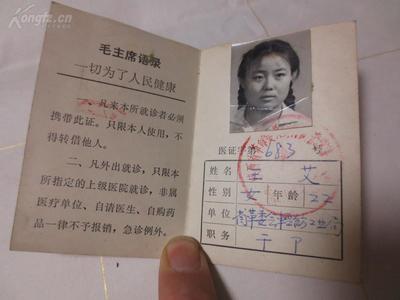 Kongfz.cn
毛主席语录
一切为了人民健康
一、凡来本所就诊者必须
携带此证。只限本人使用，不
得转借他人。
二、凡外出就诊，只限本
所指定的上级医院就诊，非属
医疗单位、自请医生、自购药
品一律不予报销，急诊例外。
医证字第 683 号
姓名 王艾
性别 女 年龄 22
单位
职务 干 P